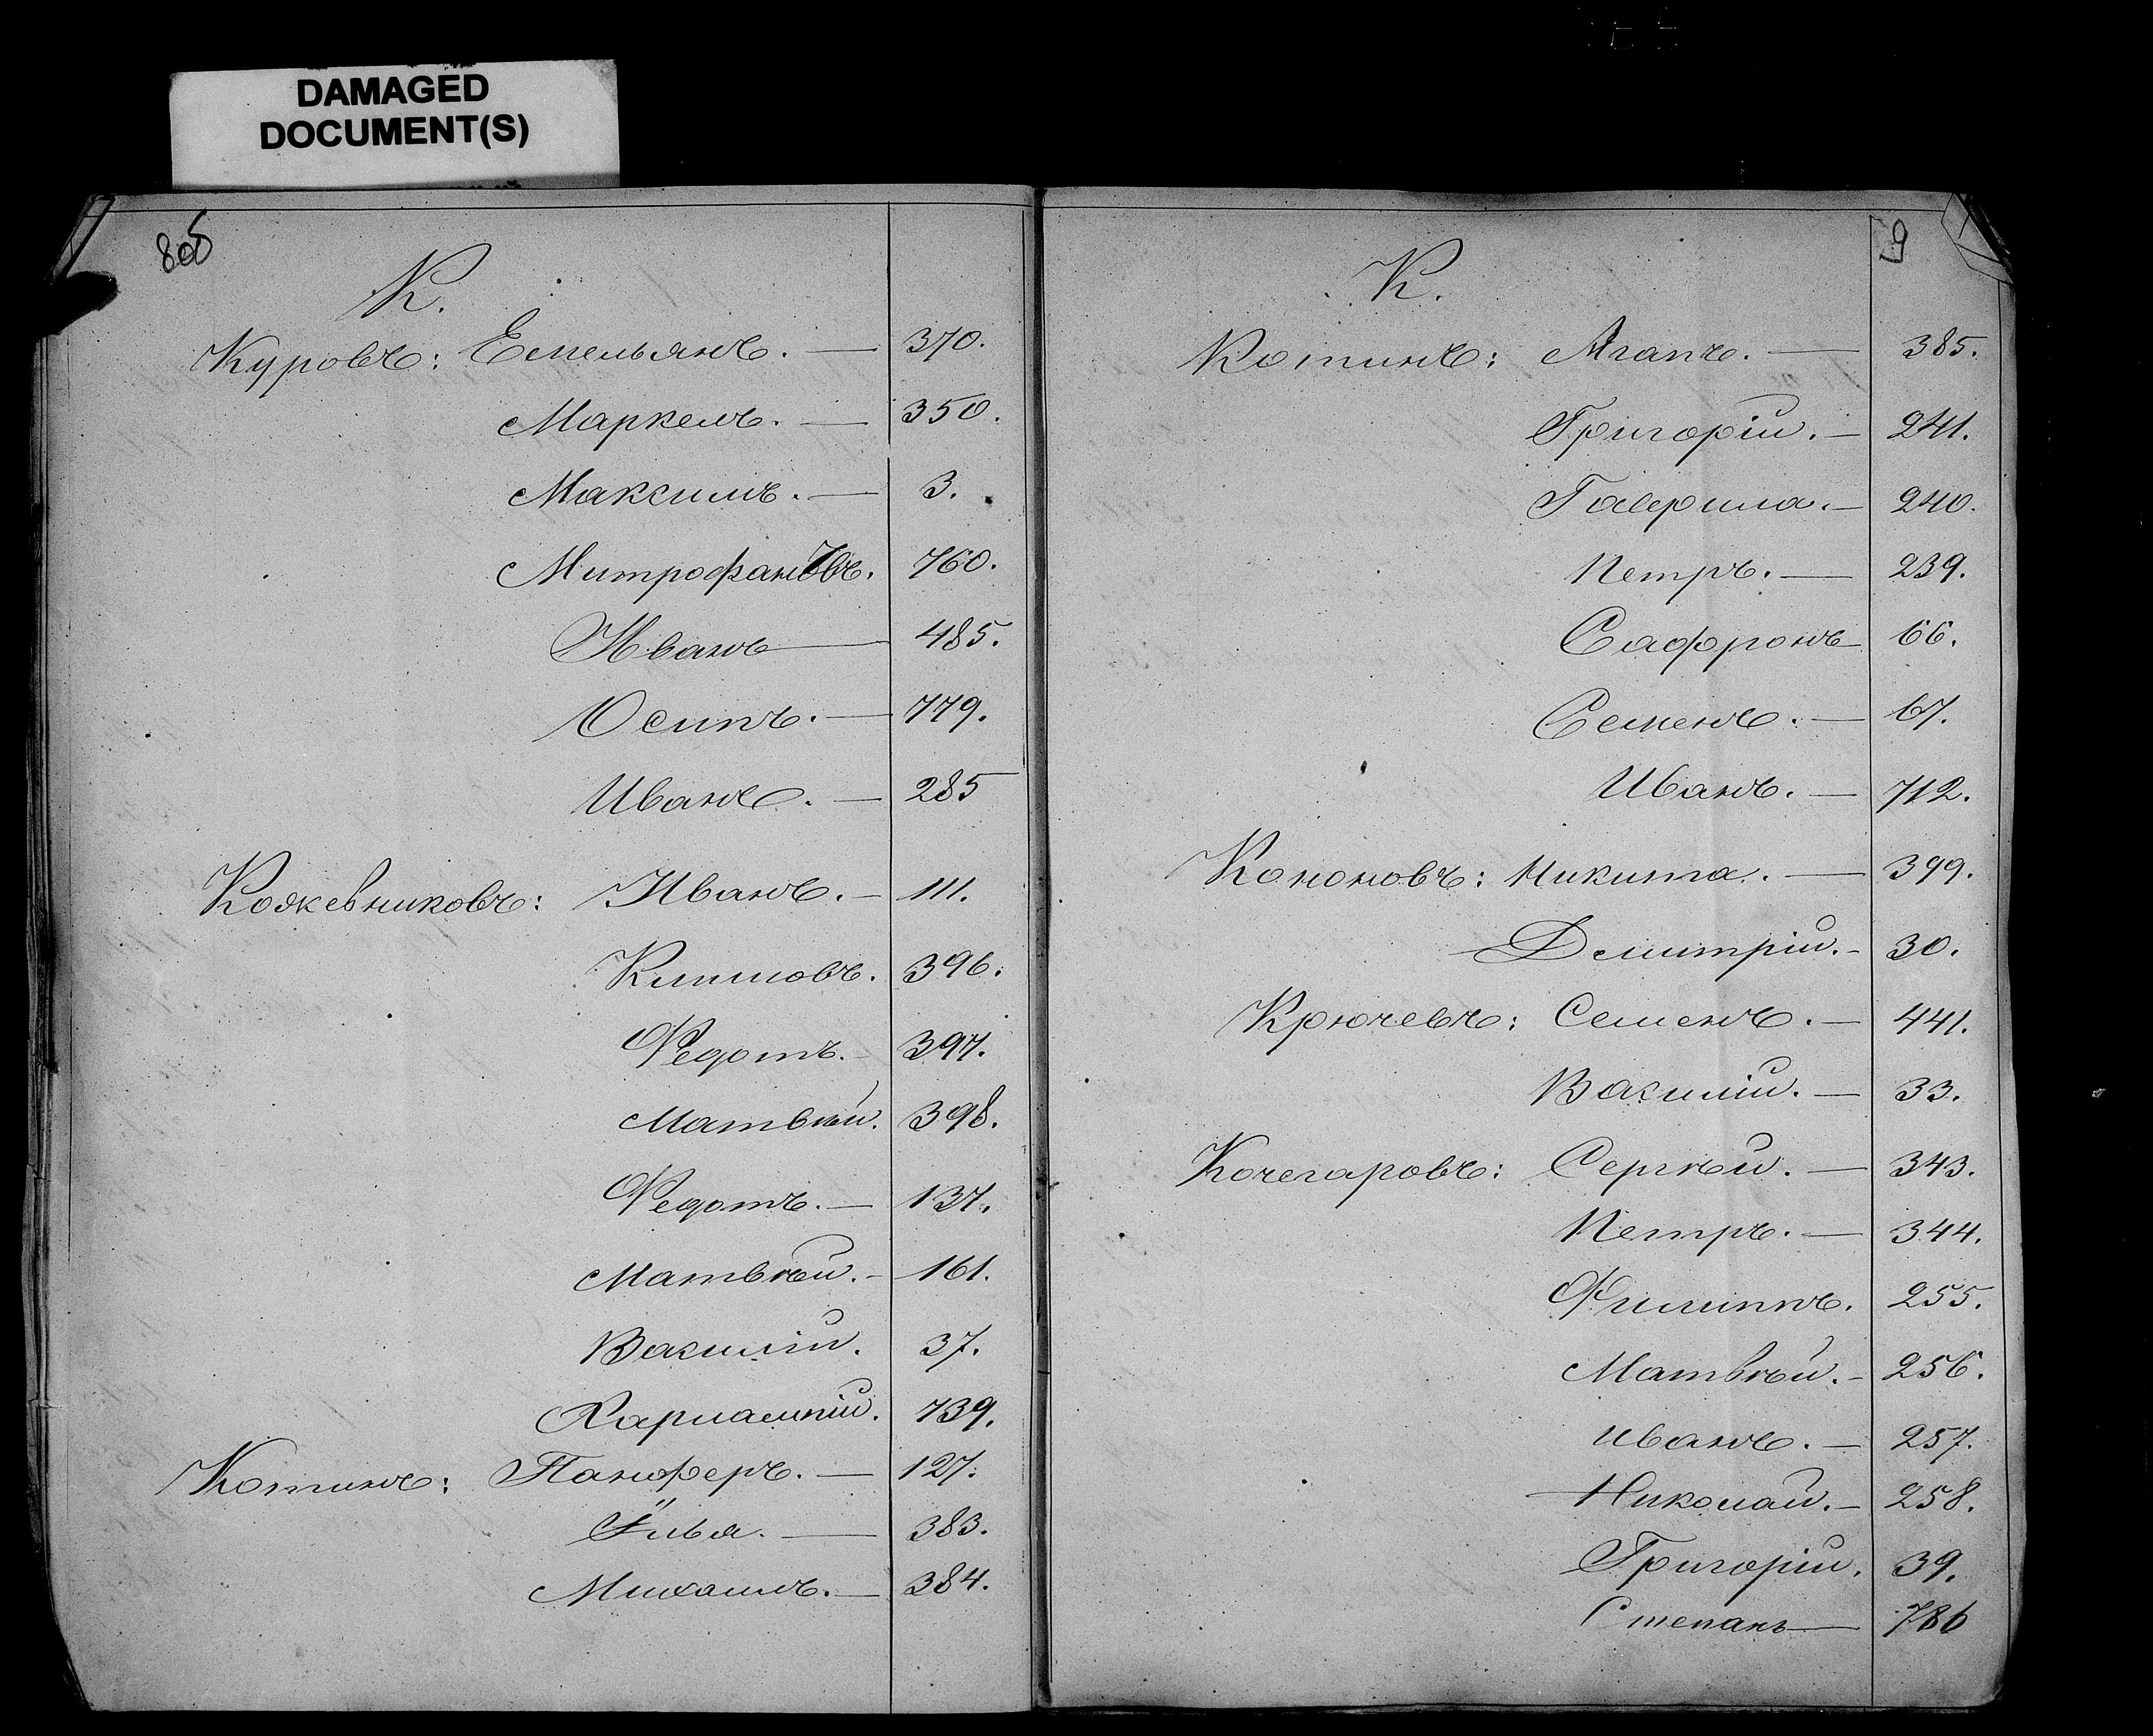 DAMAGED
DOCUMENT(S)
К.
Куровъ: Емельянъ. — 370.
Маркелъ. — 350.
Максимъ. — 3.
Митрофановъ. 760.
Иванъ — 485.
Осипъ. — 779.
Иванъ. — 285
Кожевниковъ: Иванъ. — 111.
Климовъ. 396.
Ѳедотъ. 397.
Матвѣй. 398.
Ѳедотъ. — 137.
Матвѣй. — 161.
Василій. 37.
Харлампій. 739.
Котинъ: Панферъ. — 127.
Илья. — 383.
Михаилъ. — 384.
9
К.
Котинъ: Агапъ. — 385.
Григорій. — 241.
Гаврила. — 240.
Петръ. — 239.
Сафронъ — 66.
Семенъ. — 67.
Иванъ. — 712.
Кононовъ: Никита. — 399.
Дмитрій. — 30.
Крючевъ: Семенъ. — 441.
Василій. — 33.
Кочегаровъ: Сергѣй. — 343.
Петръ. — 344.
Филиппъ. 255.
Матвѣй. — 256.
Иванъ. — 257.
Николай. — 258.
Григорій. 39.
Степанъ — 786